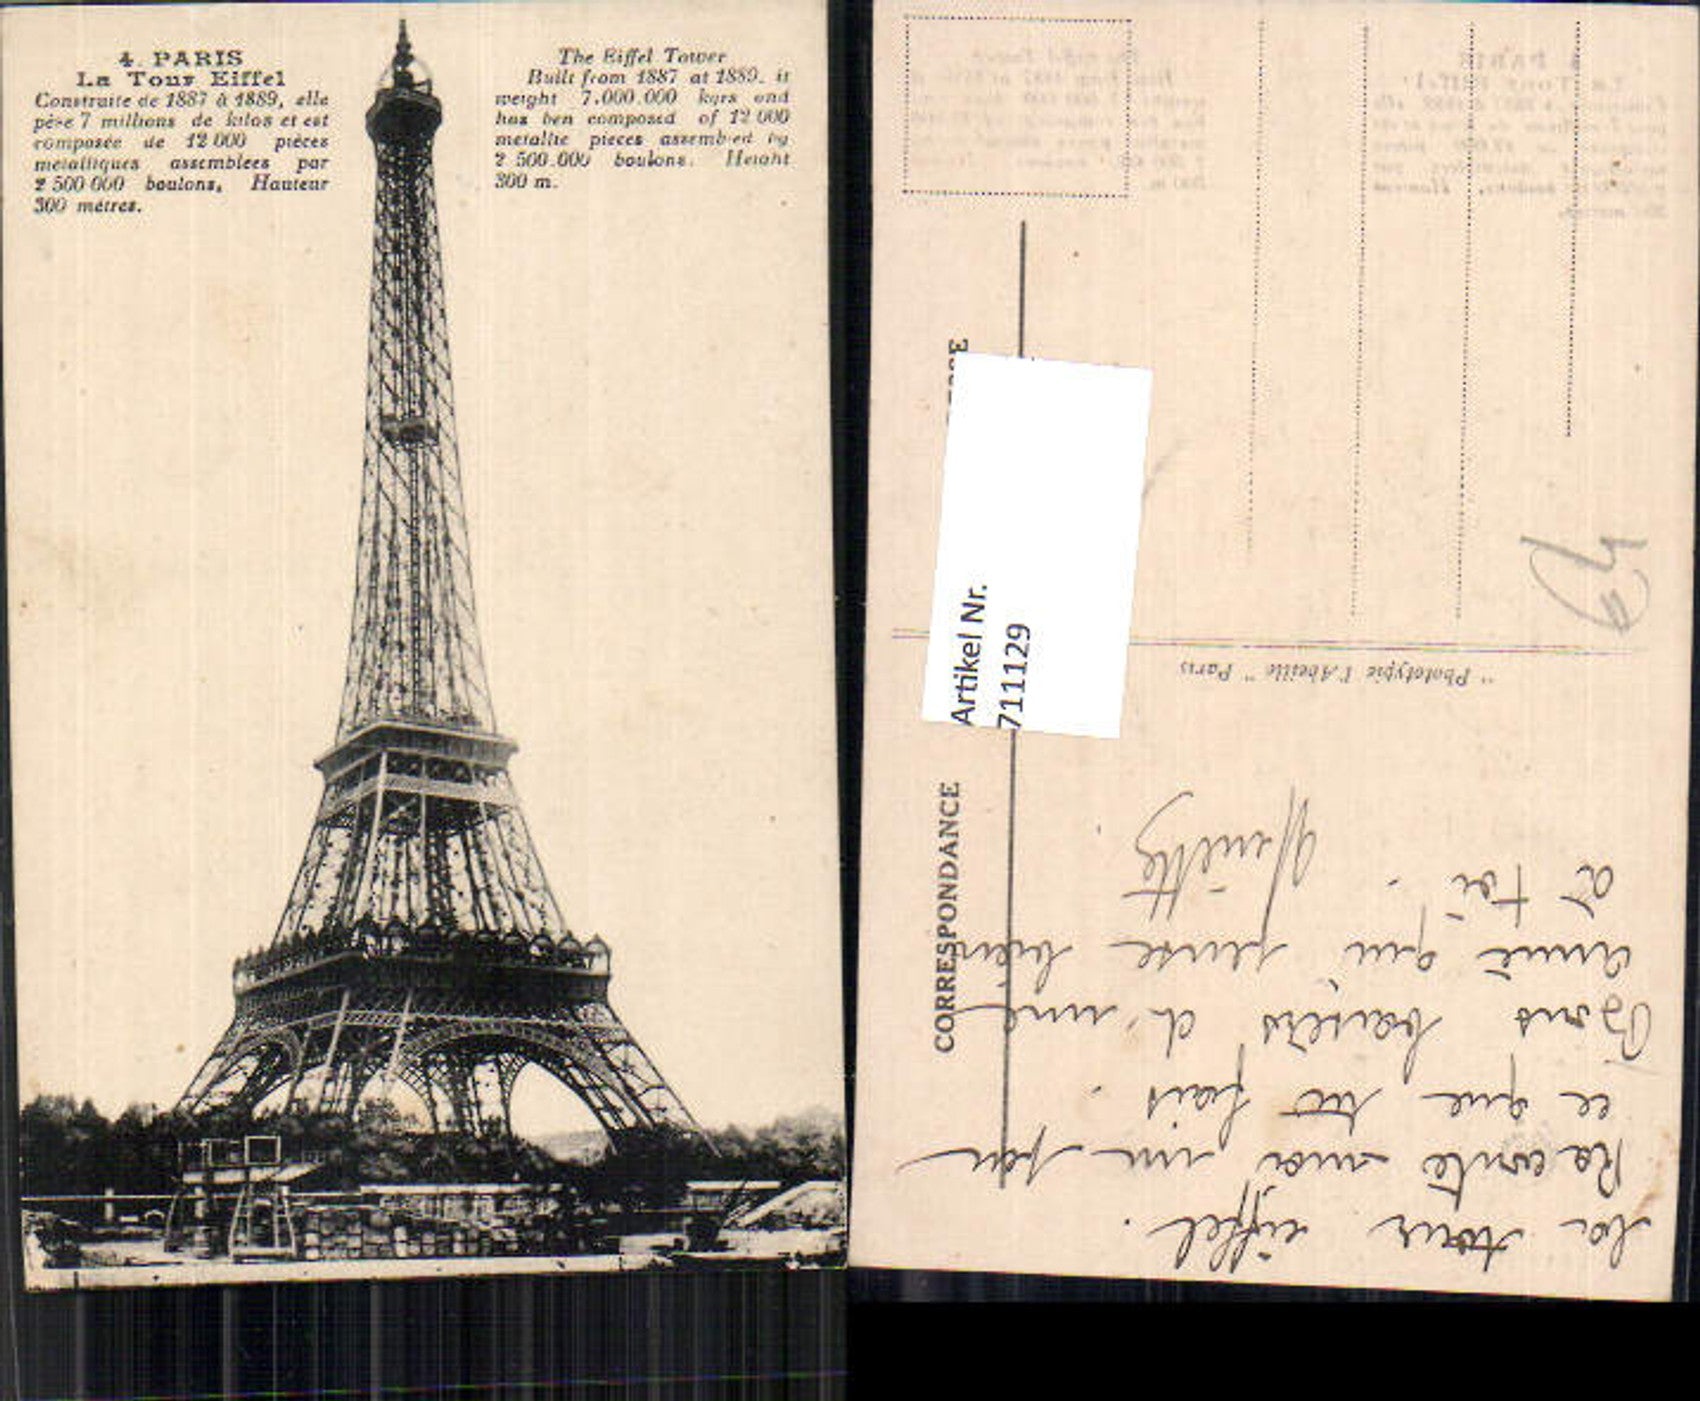 4. PARIS
La Tour Eiffel
Construite de 1887 à 1889, elle
pèse 7 millions de kilos et est
composée de 12 000 pièces
métalliques assemblées par
2 500 000 boulons, Hauteur
300 mètres.
The Eiffel Tower
Built from 1887 at 1889. it
weight 7.000.000 kgrs and
has ben composed of 12 000
metallic pieces assembled by
2 500.000 boulons. Height
300 m.
CORRESPONDANCE
Artikel Nr.
711129
" Phototypie l'Abeille " Paris
64
la tour eiffel.
Raconte moi un peu
ce que tu fais.
Bons baisers d'une
amie qui pense bien
à toi.